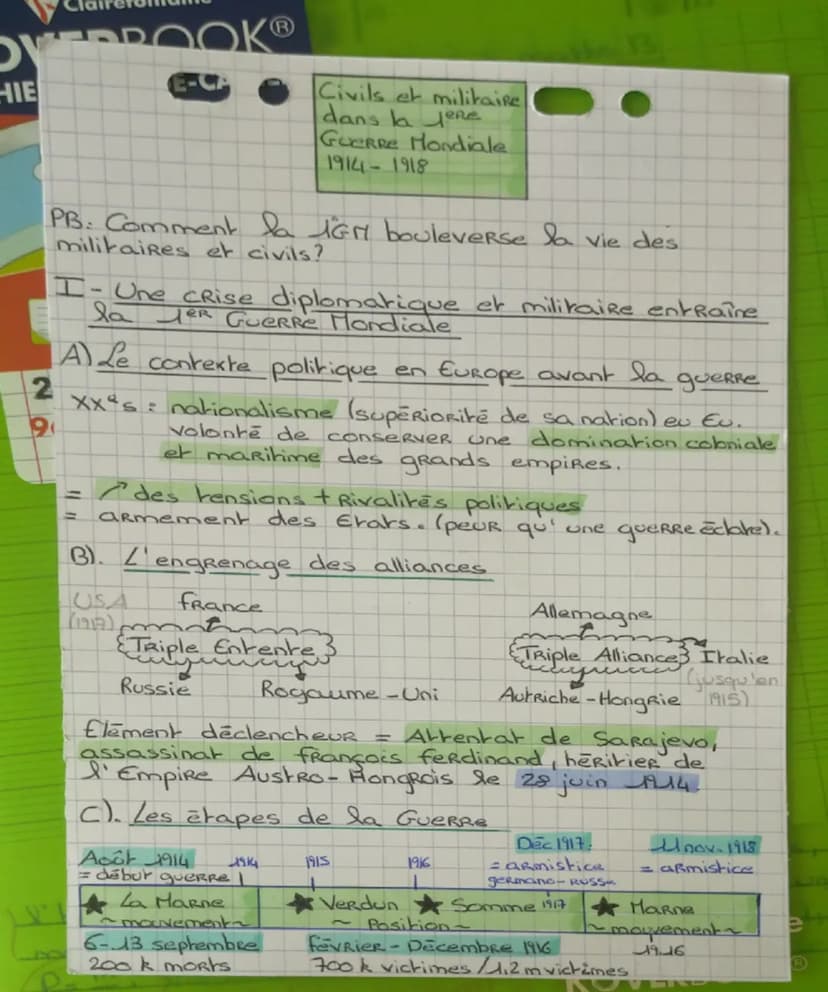 Clairefontaine
OVERBOOK®
HIE
E-CA
Civils et militaire
dans la 1ere
Guerre Mondiale
1914 - 1918
PB: Comment la 1GM bouleverse la vie des
militaires et civils?
I - Une crise diplomatique et militaire entraîne
la 1er Guerre Mondiale
A) Le contexte politique en Europe avant la guerre
XXes : nationalisme (supériorité de sa nation) eu Eu.
volonté de conserver une domination coloniale
et maritime des grands empires.
= ↗ des tensions + Rivalités politiques
= armement des Etats. (peur qu'une guerre éclate).
B). L'engrenage des alliances
USA
(1917)
france
Triple Entente
Russie
Royaume-Uni
Allemagne
Triple Alliance
Italie
(jusqu'en
1915)
Autriche-Hongrie
Elément déclencheur = Attentat de Sarajevo,
assassinat de françois ferdinand, héritier de
l'Empire Austro-Hongrois le 28 juin 1914.
C). Les étapes de la Guerre
Août 1914
= début guerre
1914
1915
1916
Déc 1917.
= armistice
germano-russe
11 nov. 1918
= armistice
★ La Marne
~ mouvement ~
★ Verdun ★ Somme 1917
~ Position ~
★ Marne
~ mouvement ~
6-13 septembre
200 k morts
février - Décembre 1916
700 k victimes / 1,2 m victimes
1916
2
9